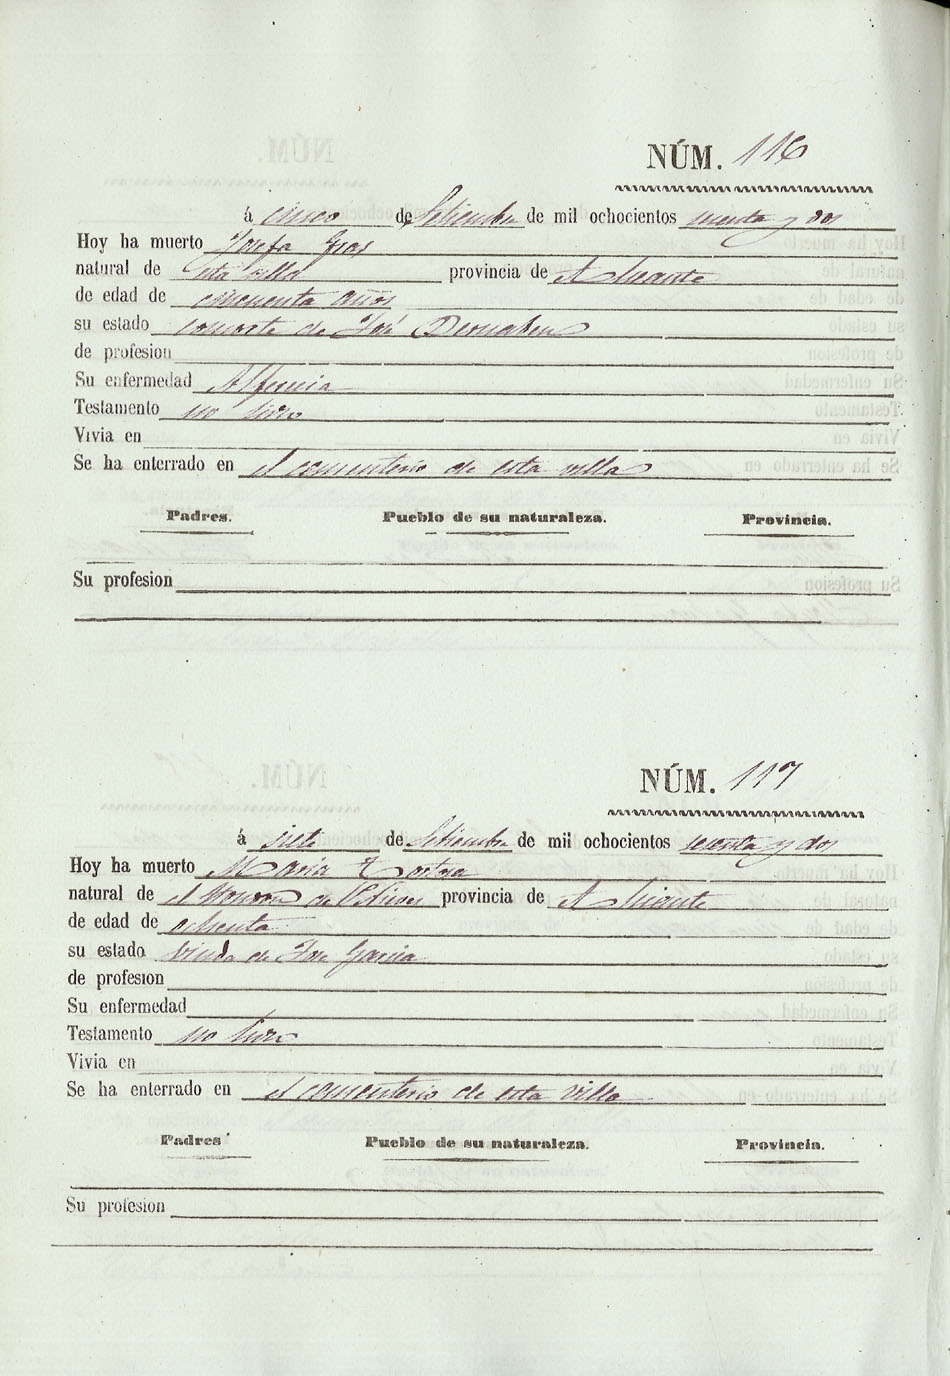 NÚM. 116
á cinco de Setiembre de mil ochocientos sesenta y dos
Hoy ha muerto Josefa Gras
natural de esta villa provincia de Alicante
de edad de cincuenta años
su estado consorte de José Bernabeu
de profesion
Su enfermedad
Testamento no hizo
Vivia en
Se ha enterrado en el cementerio de esta villa
Padres. Pueblo de su naturaleza. Provincia.
Su profesion
NÚM. 117
á siete de Setiembre de mil ochocientos sesenta y dos
Hoy ha muerto Maria
natural de el de provincia de Alicante
de edad de ochenta
su estado viuda de Jose Garcia
de profesion
Su enfermedad
Testamento no hizo
Vivia en
Se ha enterrado en el cementerio de esta villa
Padres Pueblo de su naturaleza. Provincia.
Su profesion